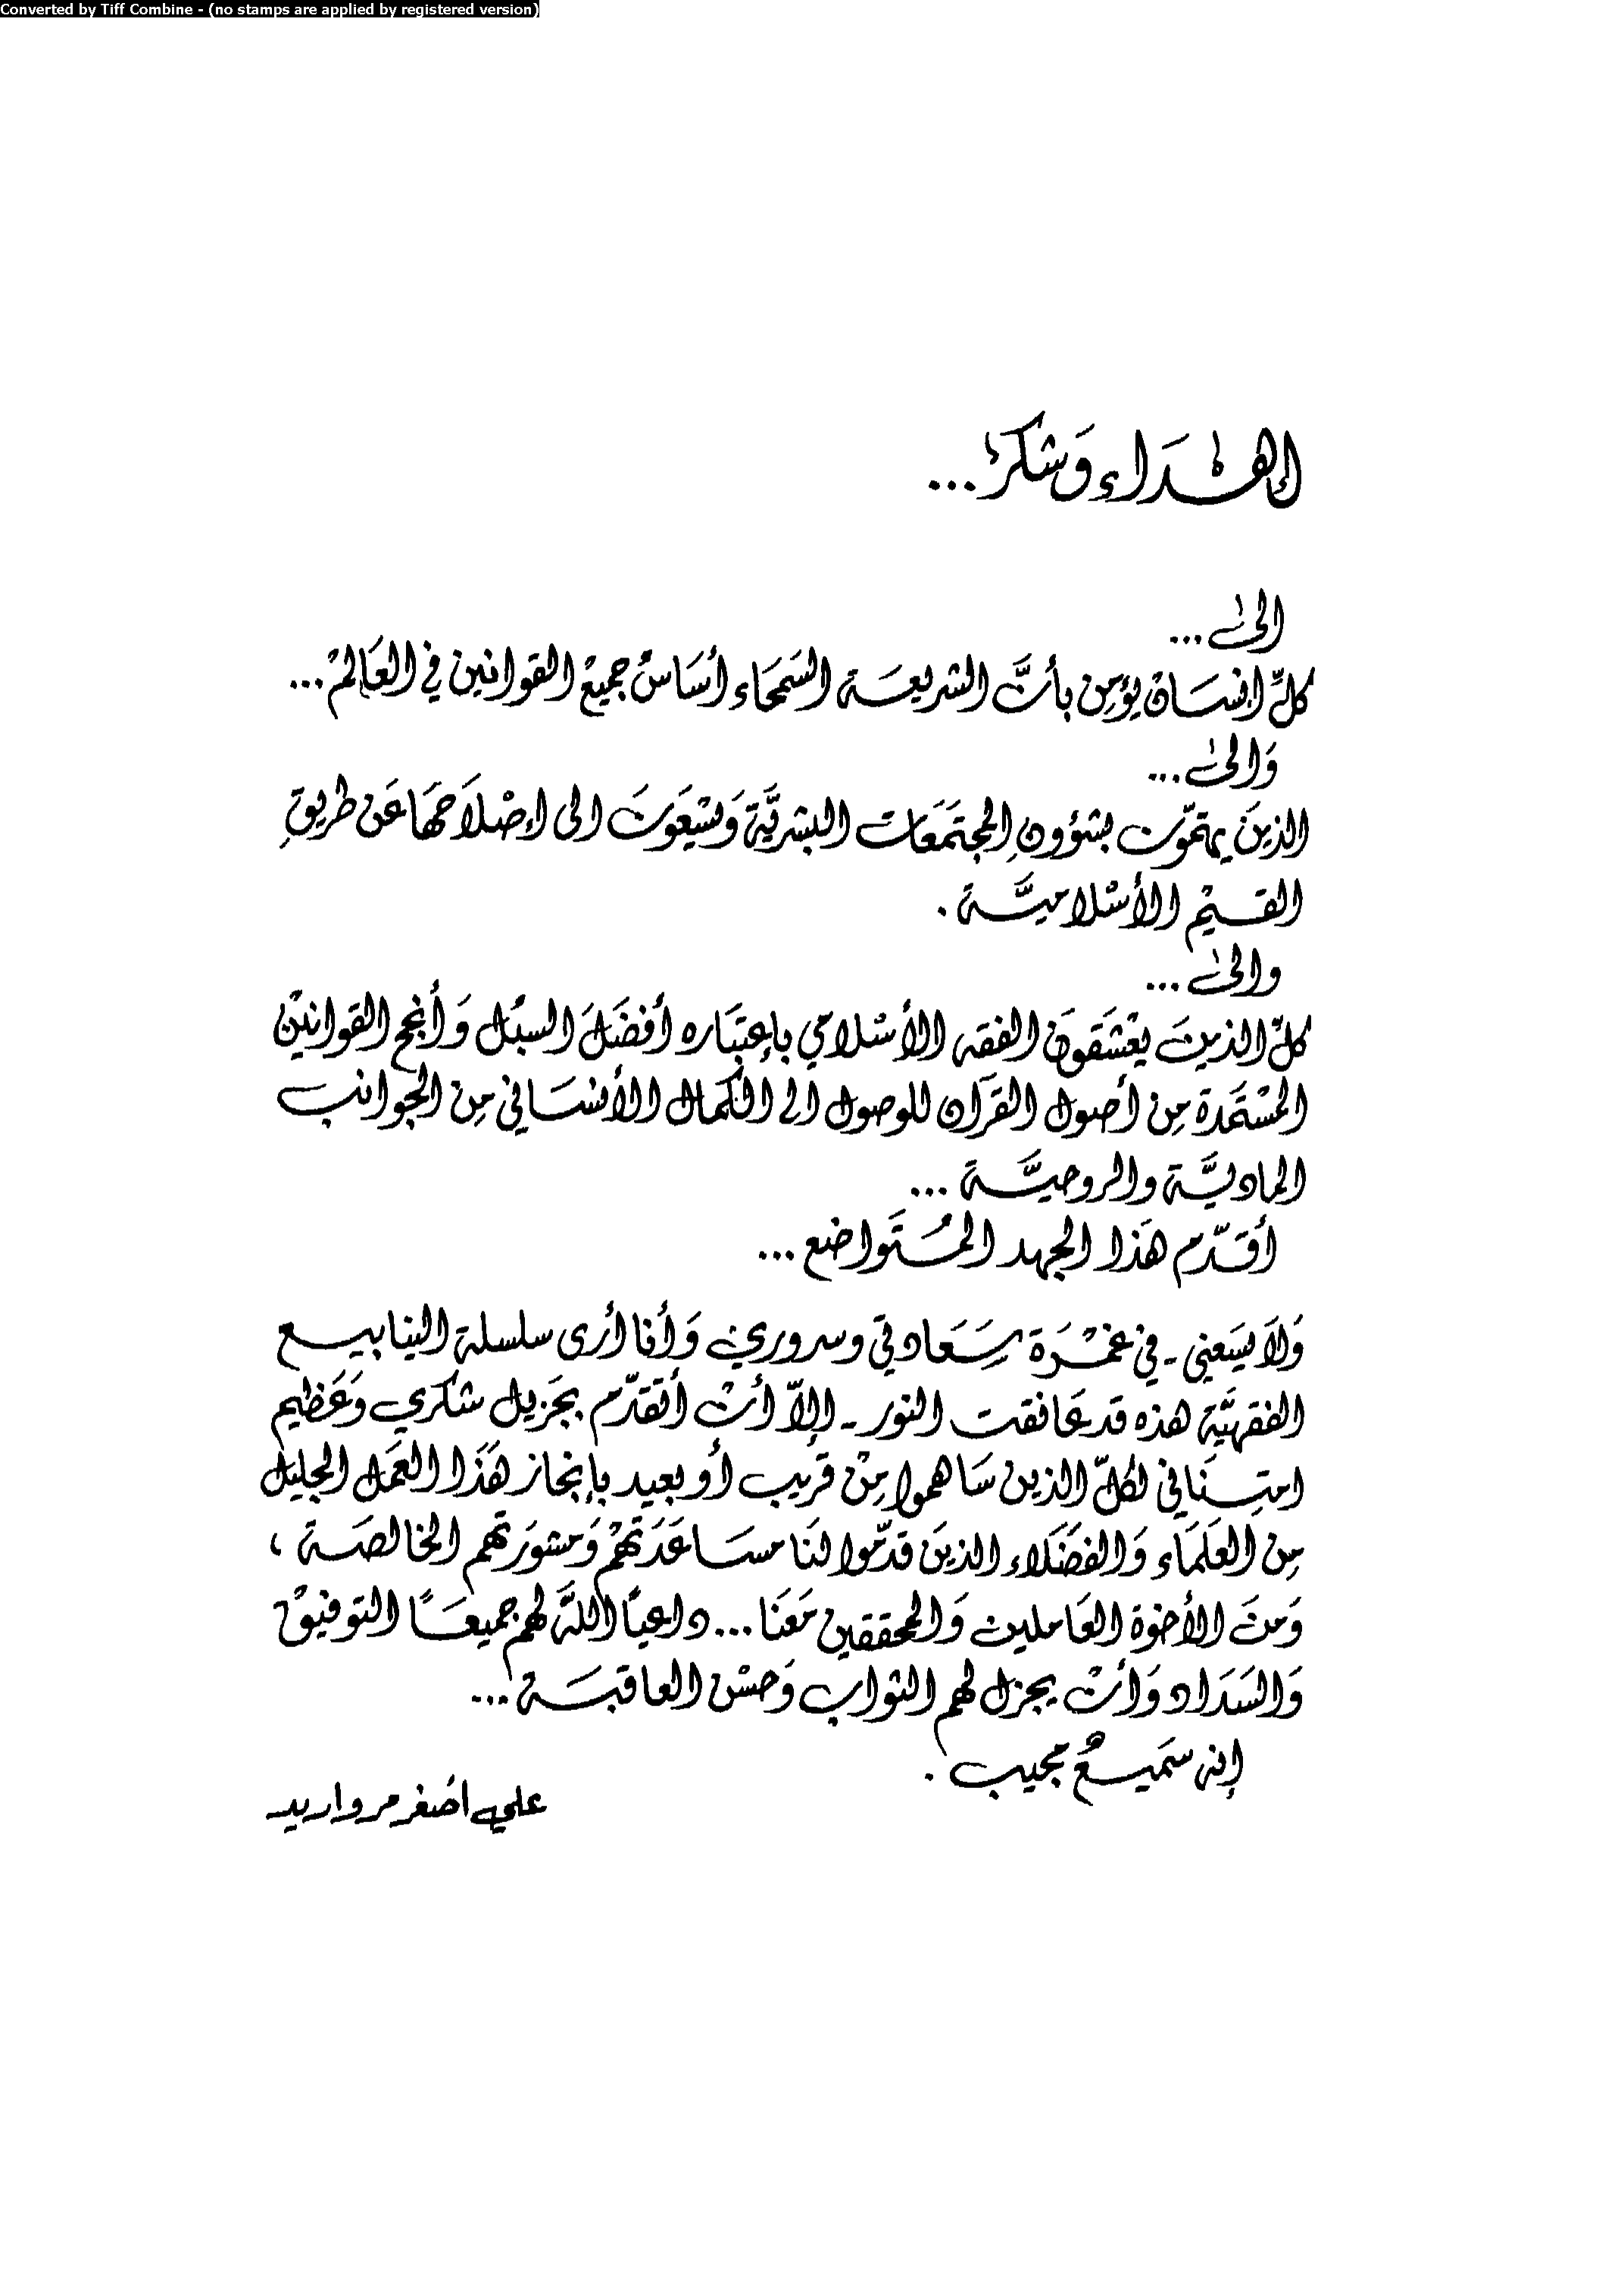 Converted by Tiff Combine - (no stamps are applied by registered version)
إهداء وشكر ...
الى ...
كلّ انسان يؤمن بأنّ الشريعة السمحاء أساس جميع القوانين في العالم ...
والى ...
الذين يهتمّون بشؤون المجتمعات البشريّة ويسعون الى إصلاحها عن طريق
القيم الأسلاميّة .
والى ...
كلّ الذين يعشقون الفقه الأسلامي بإعتباره أفضل السبل وأنجح القوانين
المستمدة من أصول القرآن للوصول الى الكمال الأنساني من الجوانب
الماديّة والروحيّة ...
أقدّم هذا الجهد المتواضع ...
ولا يسعني - في غمرة سعادتي وسروري وأنا أرى سلسلة الينابيع
الفقهيّة هذه قد عانقت النور - إلاّ أن أتقدّم بجزيل شكري وعظيم
امتناني لكلّ الذين ساهموا من قريب أو بعيد بإنجاز هذا العمل الجليل
من العلماء والفضلاء الذين قدّموا لنا مساعدتهم ومشورتهم الخالصة ،
ومن الأخوة العاملين والمحققين معنا ... داعياً اللّه لهم جميعاً التوفيق
والسداد وأن يجزل لهم الثواب وحسن العاقبة ...
إنه سميع مجيب .
علي أصغر مرواريد